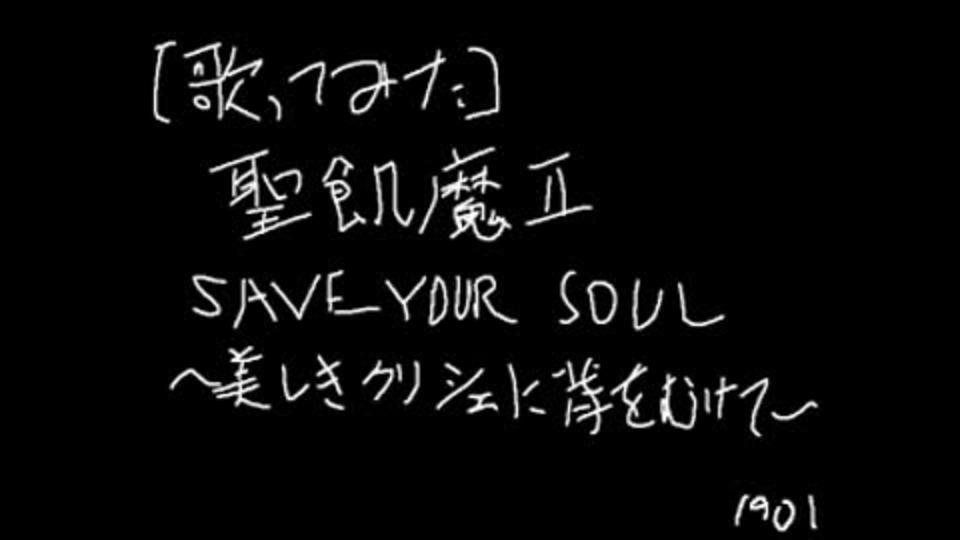 [歌ってみた]
聖飢魔II
SAVE YOUR SOUL
～美しきクリシェに背をむけて～
1901